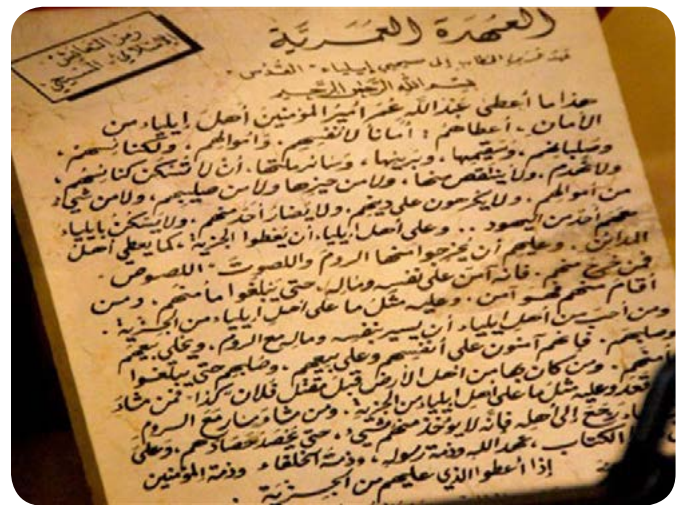 العهدة العمرية
رمز التعايش
الإسلامي المسيحي
عهد عمر بن الخطاب إلى مسيحيي إيلياء "القدس"
بسم الله الرحمن الرحيم
هذا ما أعطى عبد الله عمر أمير المؤمنين أهل إيلياء من
الأمان . أعطاهم : أماناً لأنفسهم . وأموالهم ، ولكنائسهم ،
وصلبانهم . وسقيمها ، وبريئها ، وسائر ملتها . أن لا تسكن كنائسهم ،
ولا تهدم . ولا ينتقص منها ، ولا من حيزها ولا من صليبهم ، ولا من شيء
من أموالهم . ولا يكرهون على دينهم . ولا يضار أحد منهم . ولا يسكن بإيلياء
معهم أحد من اليهود .. وعلى أهل إيلياء أن يعطوا الجزية ، كما يعطي أهل
المدائن . وعليهم أن يخرجوا منها الروم واللصوت - اللصوص -
فمن خرج منهم . فإنه آمن على نفسه وماله حتى يبلغوا مأمنهم . ومن
أقام منهم فهو آمن . وعليه مثل ما على أهل إيلياء من الجزية .
ومن أحب من أهل إيلياء أن يسير بنفسه وماله مع الروم . ويخلي بيعهم
وصلبهم . فإنهم آمنون على أنفسهم وعلى بيعهم . وصلبهم حتى يبلغوا
مأمنهم . ومن كان بها من أهل الأرض قبل مقتل فلان "كذا" . فمن شاء
قعد وعليه مثل ما على أهل إيلياء من الجزية . ومن شاء سار مع الروم
رجع إلى أهله فإنه لا يؤخذ منهم شيء ، حتى يحصد حصادهم . وعلى
الكتاب ، عهد الله وذمة رسوله ، وذمة الخلفاء وذمة المؤمنين
إذا أعطوا الذي عليهم من الجزية .